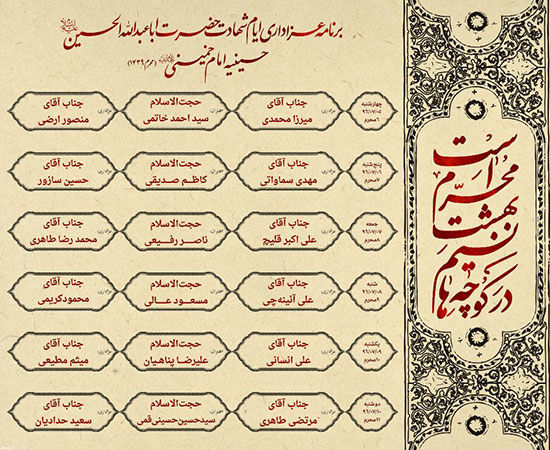 برنامه عزاداری ایام شهادت حضرت اباعبدالله الحسین
حسینیه امام خمینی (محرم ۱۴۳۹)
در کوچه‌ها نسیم بهشت محرّم است
چهارشنبه ۹۶/۰۷/۰۵ ۶محرم
جناب آقای میرزا محمدی
سخنران: حجت‌الاسلام سید احمد خاتمی
عزاداری: جناب آقای منصور ارضی
پنج‌شنبه ۹۶/۰۷/۰۶ ۷محرم
جناب آقای مهدی سماواتی
سخنران: حجت‌الاسلام کاظم صدیقی
عزاداری: جناب آقای حسین سازور
جمعه ۹۶/۰۷/۰۷ ۸محرم
جناب آقای علی اکبر قلیچ
سخنران: حجت‌الاسلام ناصر رفیعی
عزاداری: جناب آقای محمد رضا طاهری
شنبه ۹۶/۰۷/۰۸ ۹محرم
جناب آقای علی آئینه‌چی
سخنران: حجت‌الاسلام مسعود عالی
عزاداری: جناب آقای محمود کریمی
یکشنبه ۹۶/۰۷/۰۹ ۱۰محرم
جناب آقای علی انسانی
سخنران: حجت‌الاسلام علیرضا پناهیان
عزاداری: جناب آقای میثم مطیعی
دوشنبه ۹۶/۰۷/۱۰ ۱۱محرم
جناب آقای مرتضی طاهری
سخنران: حجت‌الاسلام سیدحسین حسینی‌قمی
عزاداری: جناب آقای سعید حدادیان